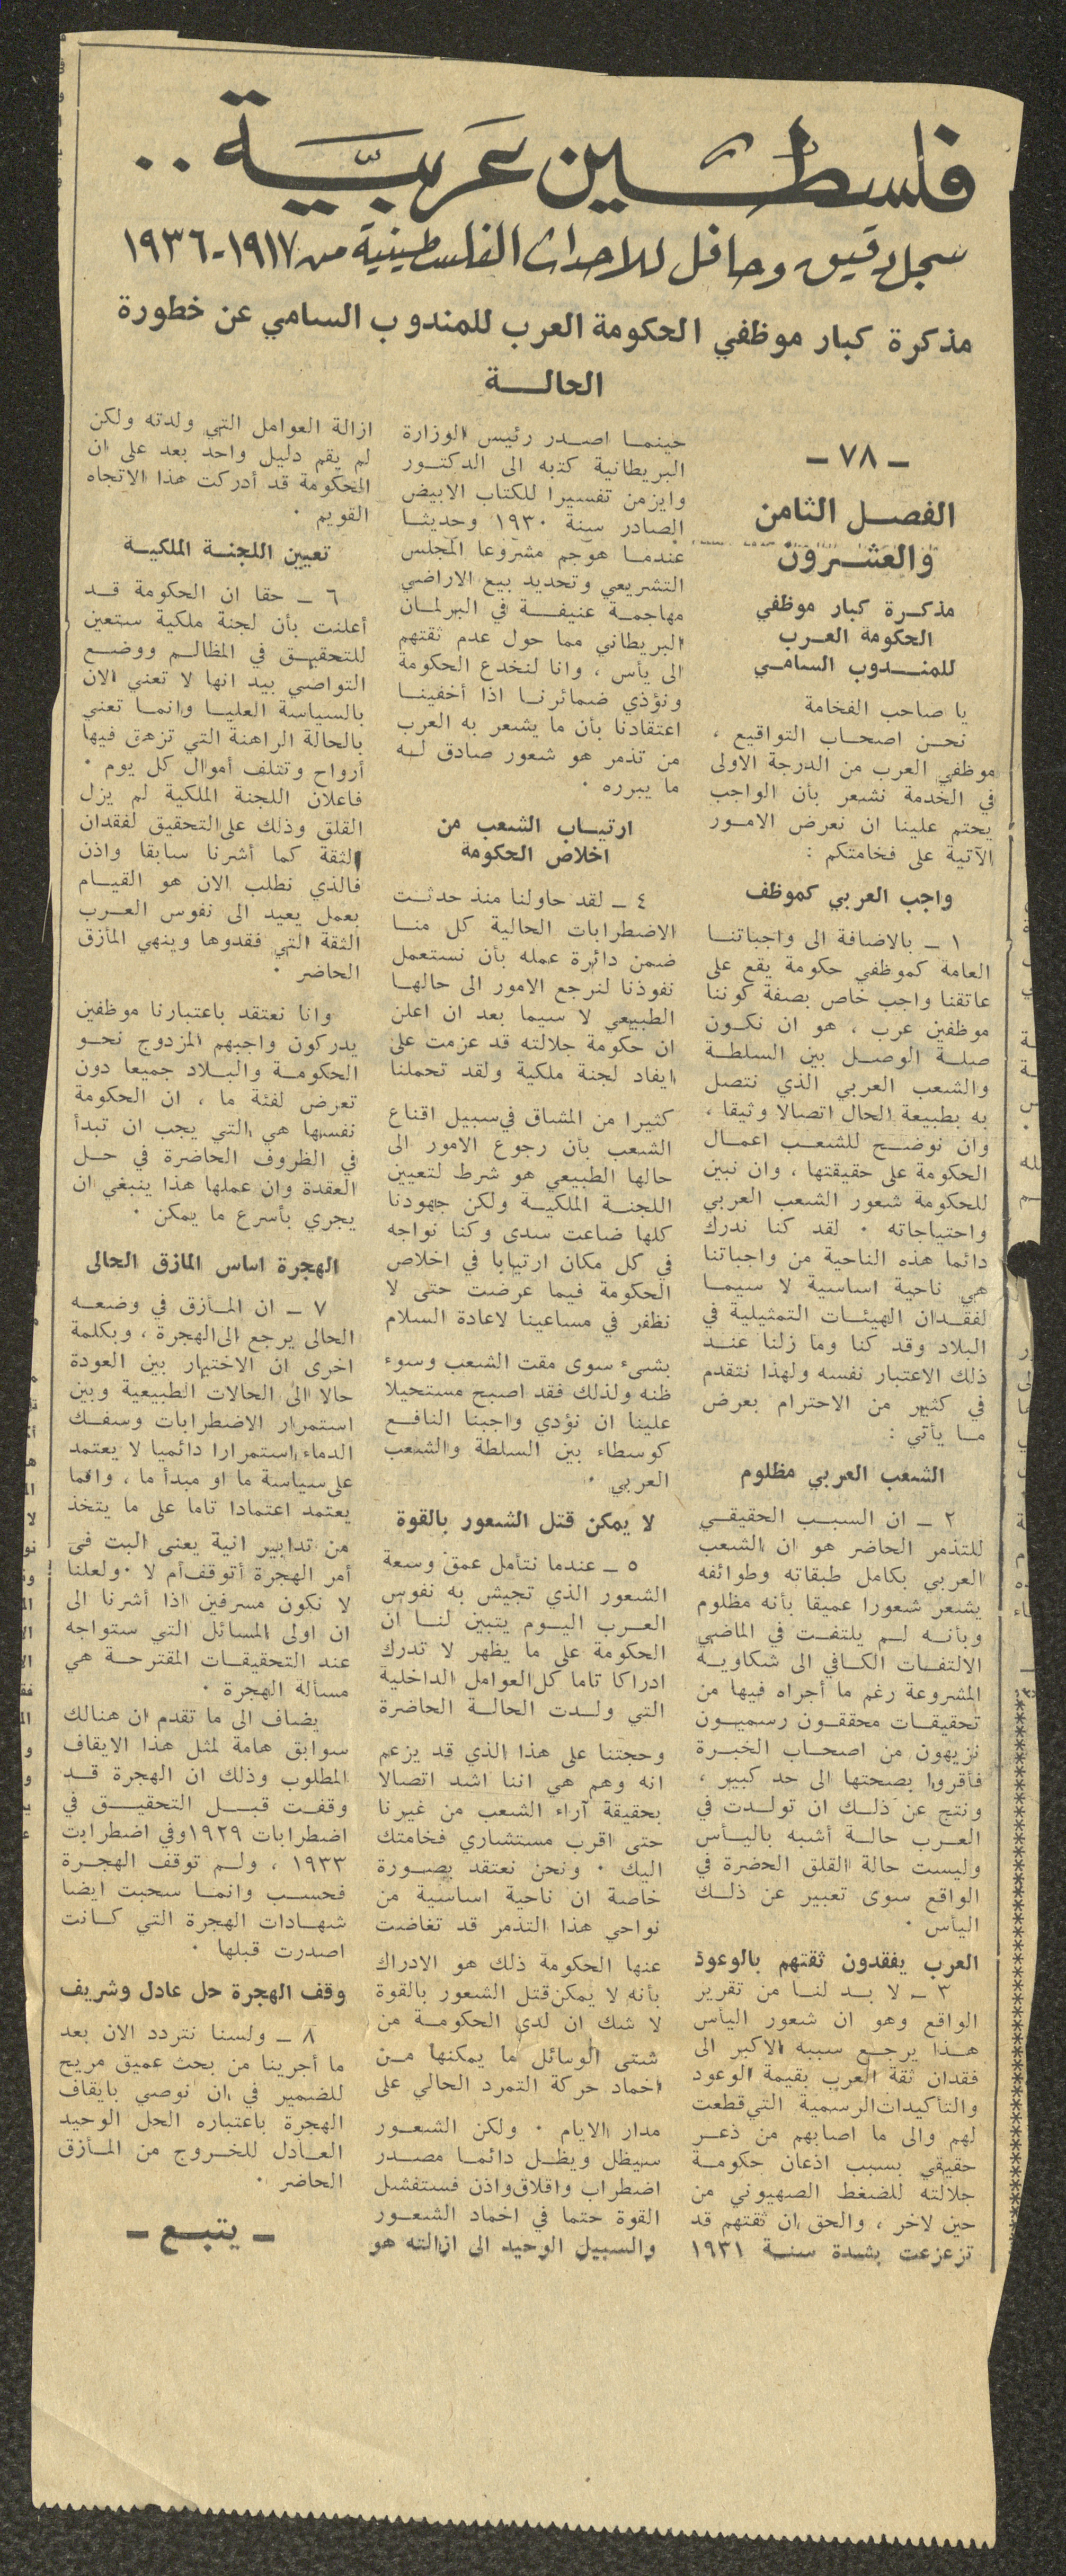 فلسطين عربية ..
سجل دقيق وحافل للاحداث الفلسطينية من ١٩١٧-١٩٣٦
مذكرة كبار موظفي الحكومة العرب للمندوب السامي عن خطورة
الحالة
- ٧٨ -
الفصل الثامن
والعشرون
مذكرة كبار موظفي
الحكومة العرب
للمندوب السامي
يا صاحب الفخامة
نحن اصحاب التواقيع ،
موظفي العرب من الدرجة الاولى
في الخدمة نشعر بأن الواجب
يحتم علينا ان نعرض الامور
الآتية على فخامتكم :
واجب العربي كموظف
١ - بالاضافة الى واجباتنا
العامة كموظفي حكومة يقع على
عاتقنا واجب خاص بصفة كوننا
موظفين عرب ، هو ان نكون
صلة الوصل بين السلطة
والشعب العربي الذي نتصل
به بطبيعة الحال اتصالا وثيقا ،
وان نوضح للشعب اعمال
الحكومة على حقيقتها ، وان نبين
للحكومة شعور الشعب العربي
واحتياجاته . لقد كنا ندرك
دائما هذه الناحية من واجباتنا
هي ناحية اساسية لا سيما
لفقدان الهيئات التمثيلية في
البلاد وقد كنا وما زلنا عند
ذلك الاعتبار نفسه ولهذا نتقدم
في كثير من الاحترام بعرض
ما يأتي :
الشعب العربي مظلوم
٢ - ان السبب الحقيقي
للتذمر الحاضر هو ان الشعب
العربي بكامل طبقاته وطوائفه
يشعر شعورا عميقا بأنه مظلوم
وبأنه لم يلتفت في الماضي
الالتفات الكافي الى شكاويه
المشروعة رغم ما أجراه فيها من
تحقيقات محققون رسميون
نزيهون من اصحاب الخبرة
فأقروا بصحتها الى حد كبير ،
ونتج عن ذلك ان تولدت في
العرب حالة أشبه باليأس
وليست حالة القلق الحضرة في
الواقع سوى تعبير عن ذلك
اليأس .
العرب يفقدون ثقتهم بالوعود
٣ - لا بد لنا من تقرير
الواقع وهو ان شعور اليأس
هذا يرجع سببه الاكبر الى
فقدان ثقة العرب بقيمة الوعود
والتأكيدات الرسمية التي قطعت
لهم والى ما اصابهم من ذعر
حقيقي بسبب اذعان حكومة
جلالته للضغط الصهيوني من
حين لاخر ، والحق ان ثقتهم قد
تزعزعت بشدة سنة ١٩٣١
حينما اصدر رئيس الوزارة
البريطانية كتبه الى الدكتور
وايزمن تفسيرا للكتاب الابيض
الصادر سنة ١٩٣٠ وحديثا
عندما هوجم مشروعا المجلس
التشريعي وتحديد بيع الاراضي
مهاجمة عنيفة في البرلمان
البريطاني مما حول عدم ثقتهم
الى يأس ، وانا لنخدع الحكومة
ونؤذي ضمائرنا اذا أخفينا
اعتقادنا بأن ما يشعر به العرب
من تذمر هو شعور صادق له
ما يبرره .
ارتياب الشعب من
اخلاص الحكومة
٤ - لقد حاولنا منذ حدثت
الاضطرابات الحالية كل منا
ضمن دائرة عمله بأن نستعمل
نفوذنا لنرجع الامور الى حالها
الطبيعي لا سيما بعد ان اعلن
ان حكومة جلالته قد عزمت على
ايفاد لجنة ملكية ولقد تحملنا
كثيرا من المشاق في سبيل اقناع
الشعب بأن رجوع الامور الى
حالها الطبيعي هو شرط لتعيين
اللجنة الملكية ولكن جهودنا
كلها ضاعت سدى وكنا نواجه
في كل مكان ارتيابا في اخلاص
الحكومة فيما عرضت حتى لا
نظفر في مساعينا لاعادة السلام
بشيء سوى مقت الشعب وسوء
ظنه ولذلك فقد اصبح مستحيلا
علينا ان نؤدي واجبنا النافع
كوسطاء بين السلطة والشعب
العربي .
لا يمكن قتل الشعور بالقوة
٥ - عندما نتأمل عمق وسعة
الشعور الذي تجيش به نفوس
العرب اليوم يتبين لنا ان
الحكومة على ما يظهر لا تدرك
ادراكا تاما كل العوامل الداخلية
التي ولدت الحالة الحاضرة
وحجتنا على هذا الذي قد يزعم
انه وهم هي اننا اشد اتصالا
بحقيقة آراء الشعب من غيرنا
حتى اقرب مستشاري فخامتك
اليك . ونحن نعتقد بصورة
خاصة ان ناحية اساسية من
نواحي هذا التذمر قد تغاضت
عنها الحكومة ذلك هو الادراك
بأنه لا يمكن قتل الشعور بالقوة
لا شك ان لدى الحكومة من
شتى الوسائل ما يمكنها من
اخماد حركة التمرد الحالي على
مدار الايام . ولكن الشعور
سيظل ويظل دائما مصدر
اضطراب واقلاق واذن فستفشل
القوة حتما في اخماد الشعور
والسبيل الوحيد الى ازالته هو
ازالة العوامل التي ولدته ولكن
لم يقم دليل واحد بعد على ان
الحكومة قد أدركت هذا الاتجاه
القويم .
تعيين اللجنة الملكية
٦ - حقا ان الحكومة قد
أعلنت بأن لجنة ملكية ستعين
للتحقيق في المظالم ووضع
التواصي بيد انها لا تعني الان
بالسياسة العليا وانما تعني
بالحالة الراهنة التي تزهق فيها
أرواح وتتلف أموال كل يوم .
فاعلان اللجنة الملكية لم يزل
القلق وذلك على التحقيق لفقدان
الثقة كما أشرنا سابقا واذن
فالذي نطلب الان هو القيام
بعمل يعيد الى نفوس العرب
الثقة التي فقدوها وينهي المأزق
الحاضر .
وانا نعتقد باعتبارنا موظفين
يدركون واجبهم المزدوج نحو
الحكومة والبلاد جميعا دون
تعرض لفئة ما ، ان الحكومة
نفسها هي التي يجب ان تبدأ
في الظروف الحاضرة في حل
العقدة وان عملها هذا ينبغي ان
يجري بأسرع ما يمكن .
الهجرة اساس المازق الحالى
٧ - ان المأزق في وضعه
الحالى يرجع الى الهجرة ، وبكلمة
اخرى ان الاختيار بين العودة
حالا الى الحالات الطبيعية وبين
استمرار الاضطرابات وسفك
الدماء استمرارا دائميا لا يعتمد
على سياسة ما او مبدأ ما ، وانما
يعتمد اعتمادا تاما على ما يتخذ
من تدابير انية يعنى البت في
أمر الهجرة أتوقف أم لا . ولعلنا
لا نكون مسرفين اذا أشرنا الى
ان اولى المسائل التي ستواجه
عند التحقيقات المقترحة هي
مسألة الهجرة .
يضاف الى ما تقدم ان هنالك
سوابق هامة لمثل هذا الايقاف
المطلوب وذلك ان الهجرة قد
وقفت قبل التحقيق في
اضطرابات ١٩٢٩ وفي اضطرابت
١٩٣٣ ، ولم توقف الهجرة
فحسب وانما سحبت ايضا
شهادات الهجرة التي كانت
اصدرت قبلها .
وقف الهجرة حل عادل وشريف
٨ - ولسنا نتردد الان بعد
ما أجرينا من بحث عميق مريح
للضمير في ان نوصي بايقاف
الهجرة باعتباره الحل الوحيد
العادل للخروج من المأزق
الحاضر .
- يتبع -